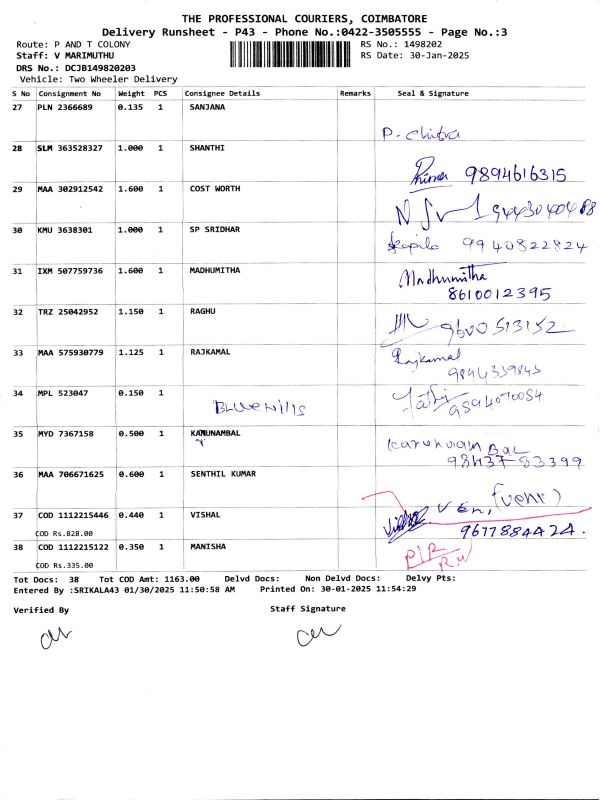 THE PROFESSIONAL COURIERS, COIMBATORE
Delivery Runsheet - P43 - Phone No.:0422-3505555 - Page No.:3
Route: P AND T COLONY RS No.: 1498202
Staff: V MARIMUTHU RS Date: 30-Jan-2025
DRS No.: DCJB149820203
Vehicle: Two Wheeler Delivery
S No Consignment No Weight PCS Consignee Details Remarks Seal & Signature
27 PLN 2366689 0.135 1 SANJANA
P. chitra
28 SLM 363528327 1.000 1 SHANTHI
9894616315
29 MAA 302912542 1.600 1 COST WORTH
30 KMU 3638301 1.000 1 SP SRIDHAR
9940822824
31 IXM 507759736 1.600 1 MADHUMITHA
Madhumitha
8610012395
32 TRZ 25042952 1.150 1 RAGHU
9600513152
33 MAA 575930779 1.125 1 RAJKAMAL
Rajkamal
9894339843
34 MPL 523047 0.150 1
BLUEHILLS
35 MYD 7367158 0.500 1
98437-83399
36 MAA 706671625 0.600 1 SENTHIL KUMAR
37 COD 1112215446 0.440 1 VISHAL
COD Rs.828.00
9677884424.
38 COD 1112215122 0.350 1 MANISHA
COD Rs.335.00
Tot Docs: 38 Tot COD Amt: 1163.00 Delvd Docs: Non Delvd Docs: Delvy Pts:
Entered By :SRIKALA43 01/30/2025 11:50:58 AM Printed On: 30-01-2025 11:54:29
Verified By Staff Signature